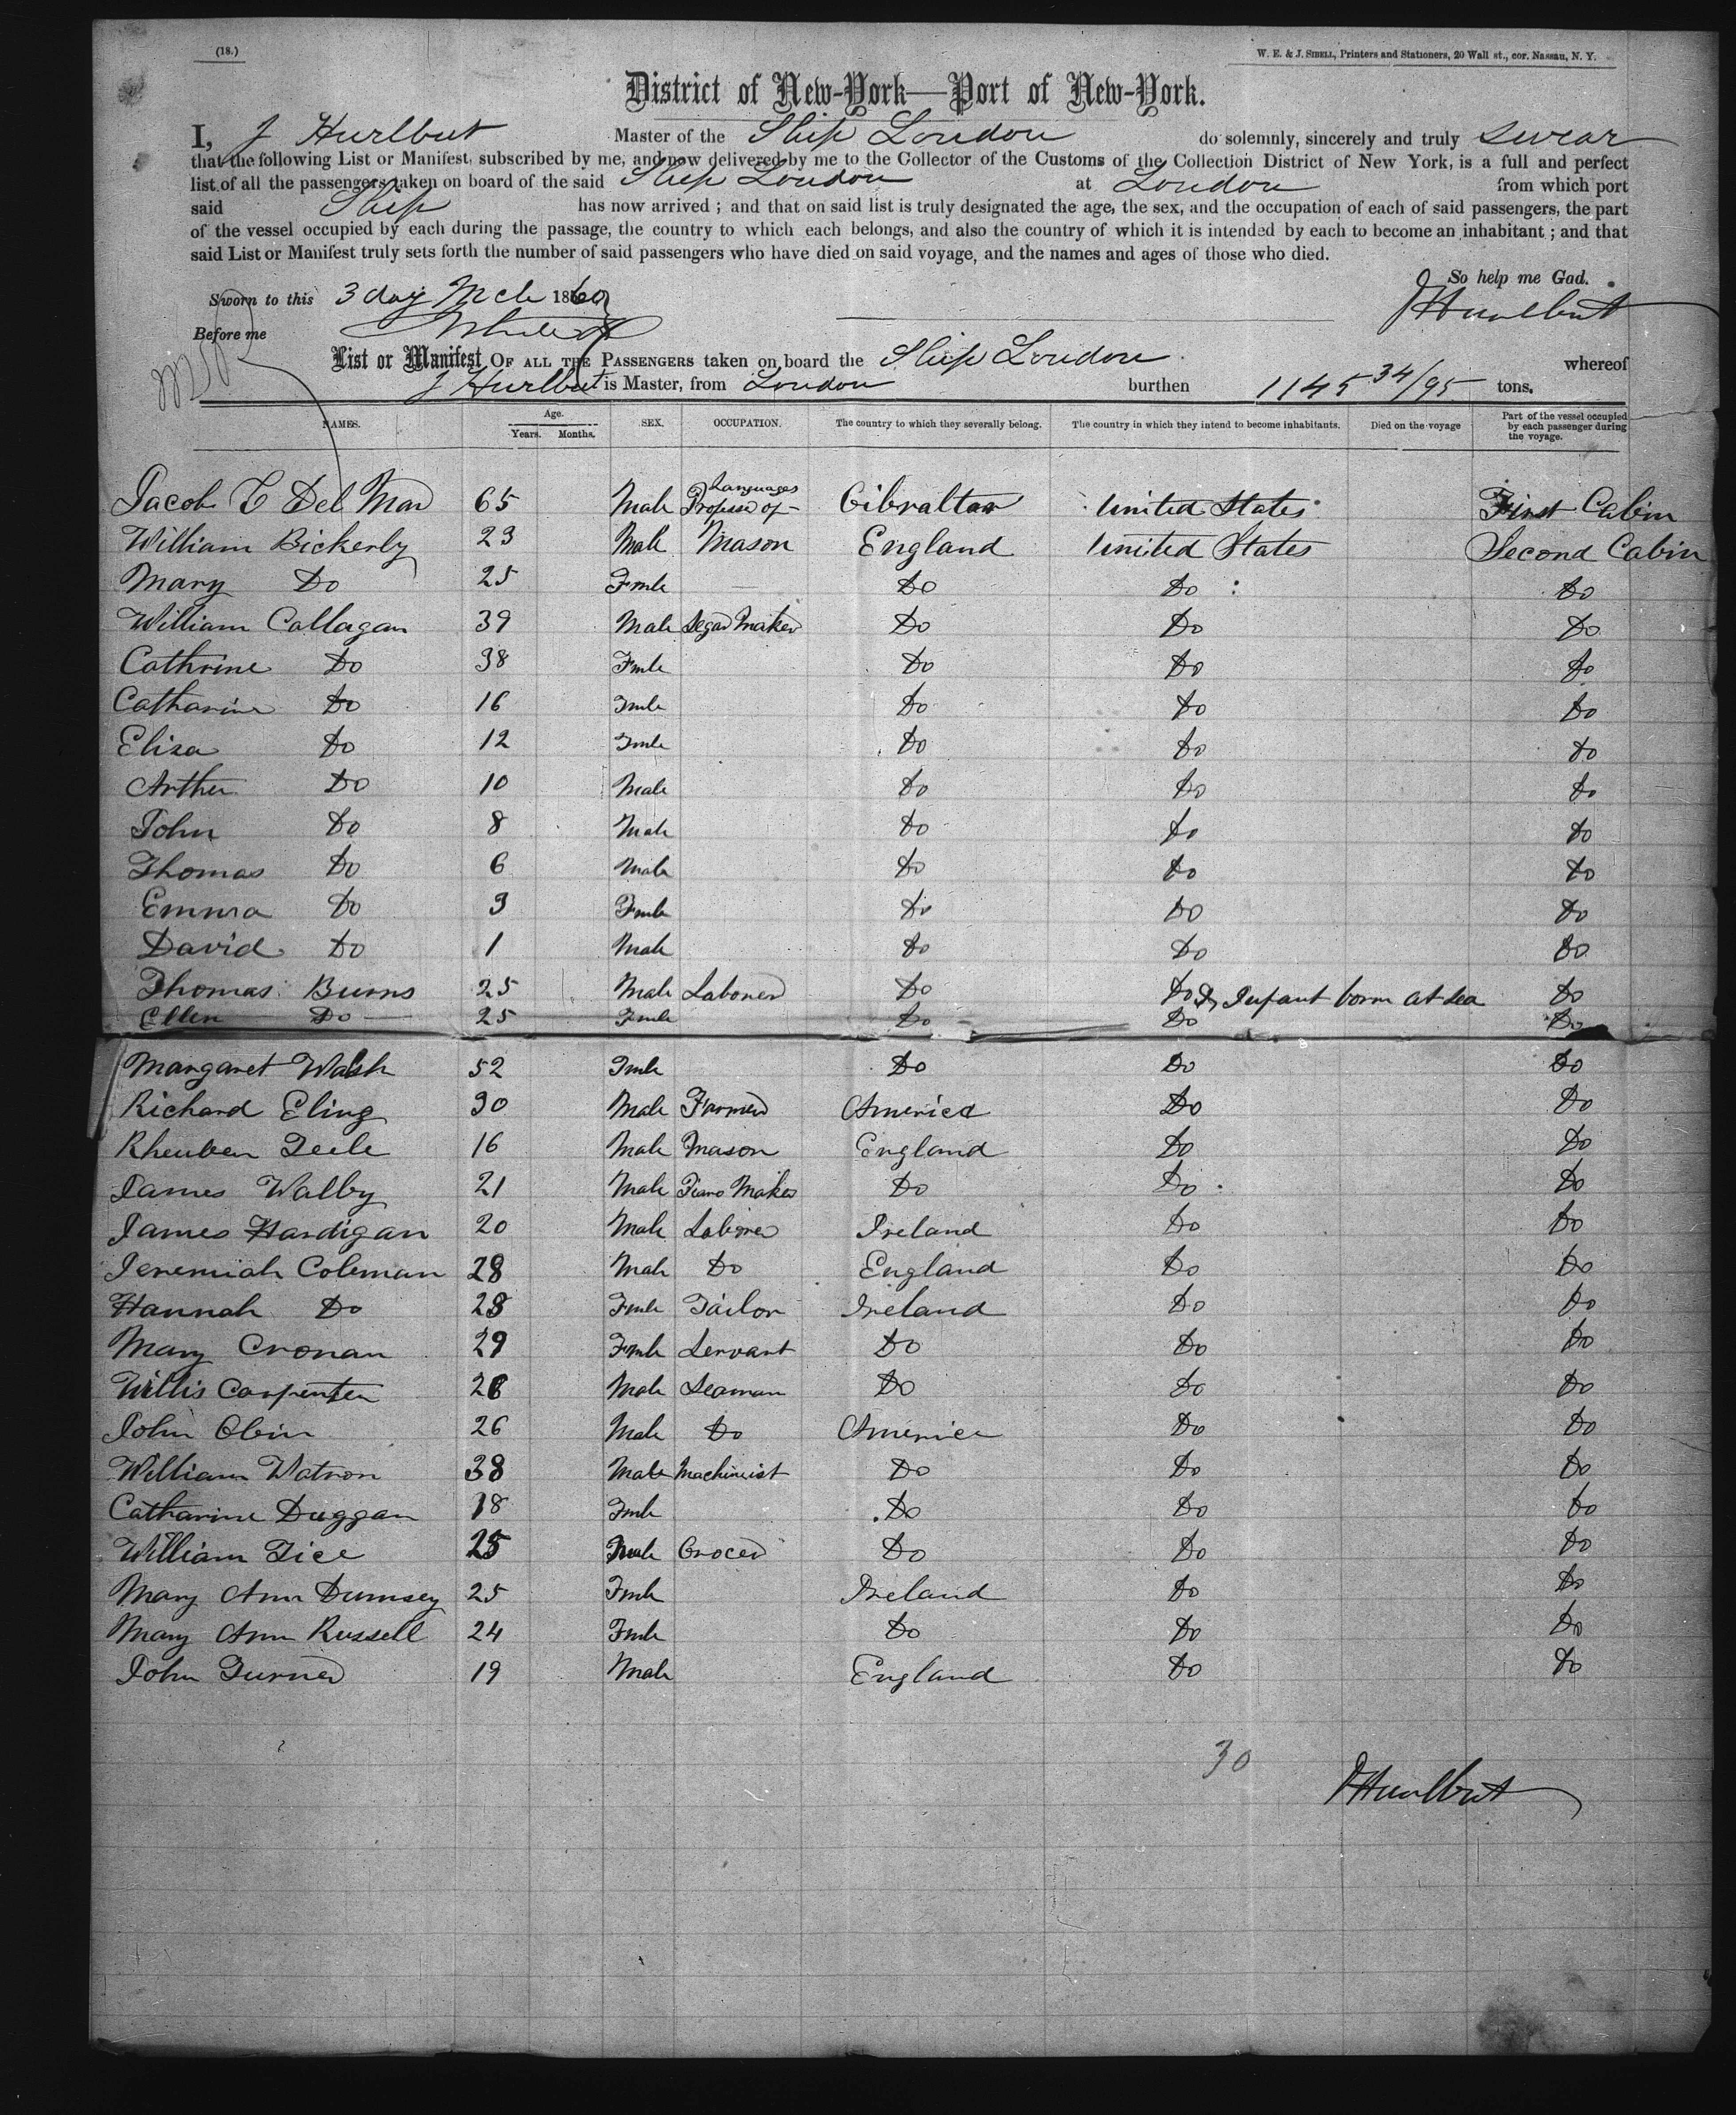 (18.)
W. E. & J. SIBELL, Printers and Stationers, 20 Wall st., cor. Nassau, N. Y.
District of New-York—Port of New-York.
I, J Hurlbut Master of the Ship London do solemnly, sincerely and truly swear
that the following List or Manifest, subscribed by me, and now delivered by me to the Collector of the Customs of the Collection District of New York, is a full and perfect
list of all the passengers taken on board of the said Ship London at London from which port
said Ship has now arrived ; and that on said list is truly designated the age, the sex, and the occupation of each of said passengers, the part
of the vessel occupied by each during the passage, the country to which each belongs, and also the country of which it is intended by each to become an inhabitant ; and that
said List or Manifest truly sets forth the number of said passengers who have died on said voyage, and the names and ages of those who died.
So help me God.
Sworn to this 3 day Mch 1860
JHurlbut
Before me
List or Manifest OF ALL THE PASSENGERS taken on board the Ship London whereof
J Hurlbut is Master, from London burthen 1145 34/95 tons.
NAMES. Age. Years. Months. SEX. OCCUPATION. The country to which they severally belong. The country in which they intend to become inhabitants. Died on the voyage Part of the vessel occupied by each passenger during the voyage.
Jacob C Del Mar 65 Male Professor of Languages Gibraltar United States First Cabin
William Bickerly 23 Male Mason England United States Second Cabin
Mary Do 25 Fmle — Do Do Do
William Callagan 39 Male Segar Maker Do Do Do
Cathrine Do 38 Fmle Do Do Do
Catharine Do 16 Fmle Do Do Do
Eliza Do 12 Fmle Do Do Do
Arthur Do 10 Male Do Do Do
John Do 8 Male Do Do Do
Thomas Do 6 Male Do Do Do
Emma Do 3 Fmle Do Do Do
David Do 1 Male Do Do Do
Thomas Burns 25 Male Laborer Do Do & Infant born at sea Do
Ellen Do 25 Fmle Do Do Do
Margaret Walsh 52 Fmle Do Do Do
Richard Eling 30 Male Farmer America Do Do
Rheuben Teele 16 Male Mason England Do Do
James Walby 21 Male Piano Maker Do Do Do
James Hardigan 20 Male Laborer Ireland Do Do
Jeremiah Coleman 28 Male Do England Do Do
Hannah Do 28 Fmle Tailor Ireland Do Do
Mary Cronan 29 Fmle Servant Do Do Do
Willis Carpenter 26 Male Seaman Do Do Do
John Olvin 26 Male Do America Do Do
William Watson 38 Male Machineist Do Do Do
Catharine Duggan 18 Fmle Do Do Do
William Tice 25 Male Grocer Do Do Do
Mary Ann Dumsey 25 Fmle Ireland Do Do
Mary Ann Russell 24 Fmle Do Do Do
John Turner 19 Male England Do Do
30
JHurlbut